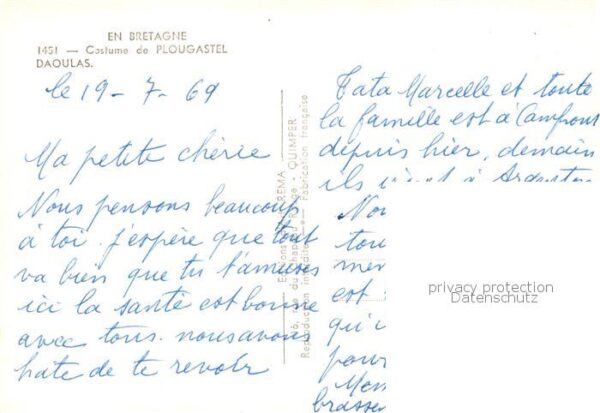 EN BRETAGNE
1451 — Costume de PLOUGASTEL
DAOULAS.
le 19 - 7 - 69
Ma petite chérie
Nous pensons beaucoup
à toi. j'espère que tout
va bien que tu t'amuses
ici la santé est bonne
avec tous. nous avons
hate de te revoir
JEREMA - QUIMPER
Reproduction interdite — Fabrication française
Tata Marcelle et toute
la famille est à Camprond
depuis hier, demain
ils
Nou
tou
mer
est
qu'i
pour
brasser
privacy protection
Datenschutz